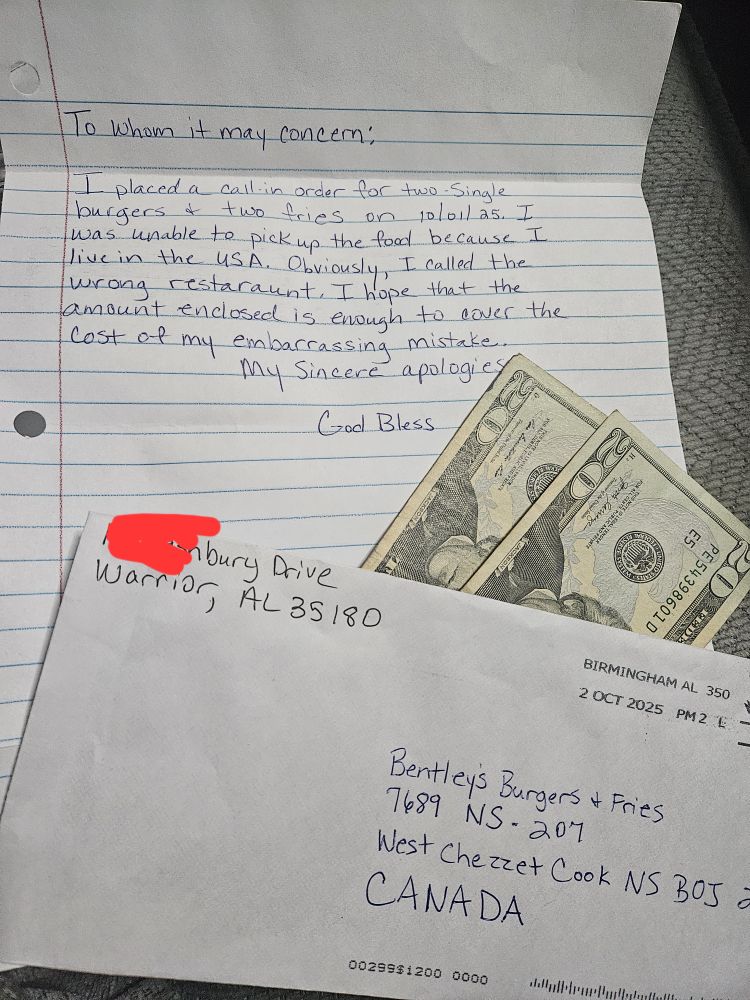 To whom it may concern;
I placed a call-in order for two-Single
burgers & two fries on 10/01/25. I
was unable to pick up the food because I
live in the USA. Obviously, I called the
wrong restaraunt. I hope that the
amount enclosed is enough to cover the
Cost of my embarrassing mistake.
My Sincere apologies
God Bless
20
20
E5
PE54398601D
nbury Drive
Warrior, AL 35180
BIRMINGHAM AL 350
2 OCT 2025 PM 2 L
Bentley's Burgers & Fries
7689 NS-207
West Chezzet Cook NS B0J 2
CANADA
00299$1200 0000